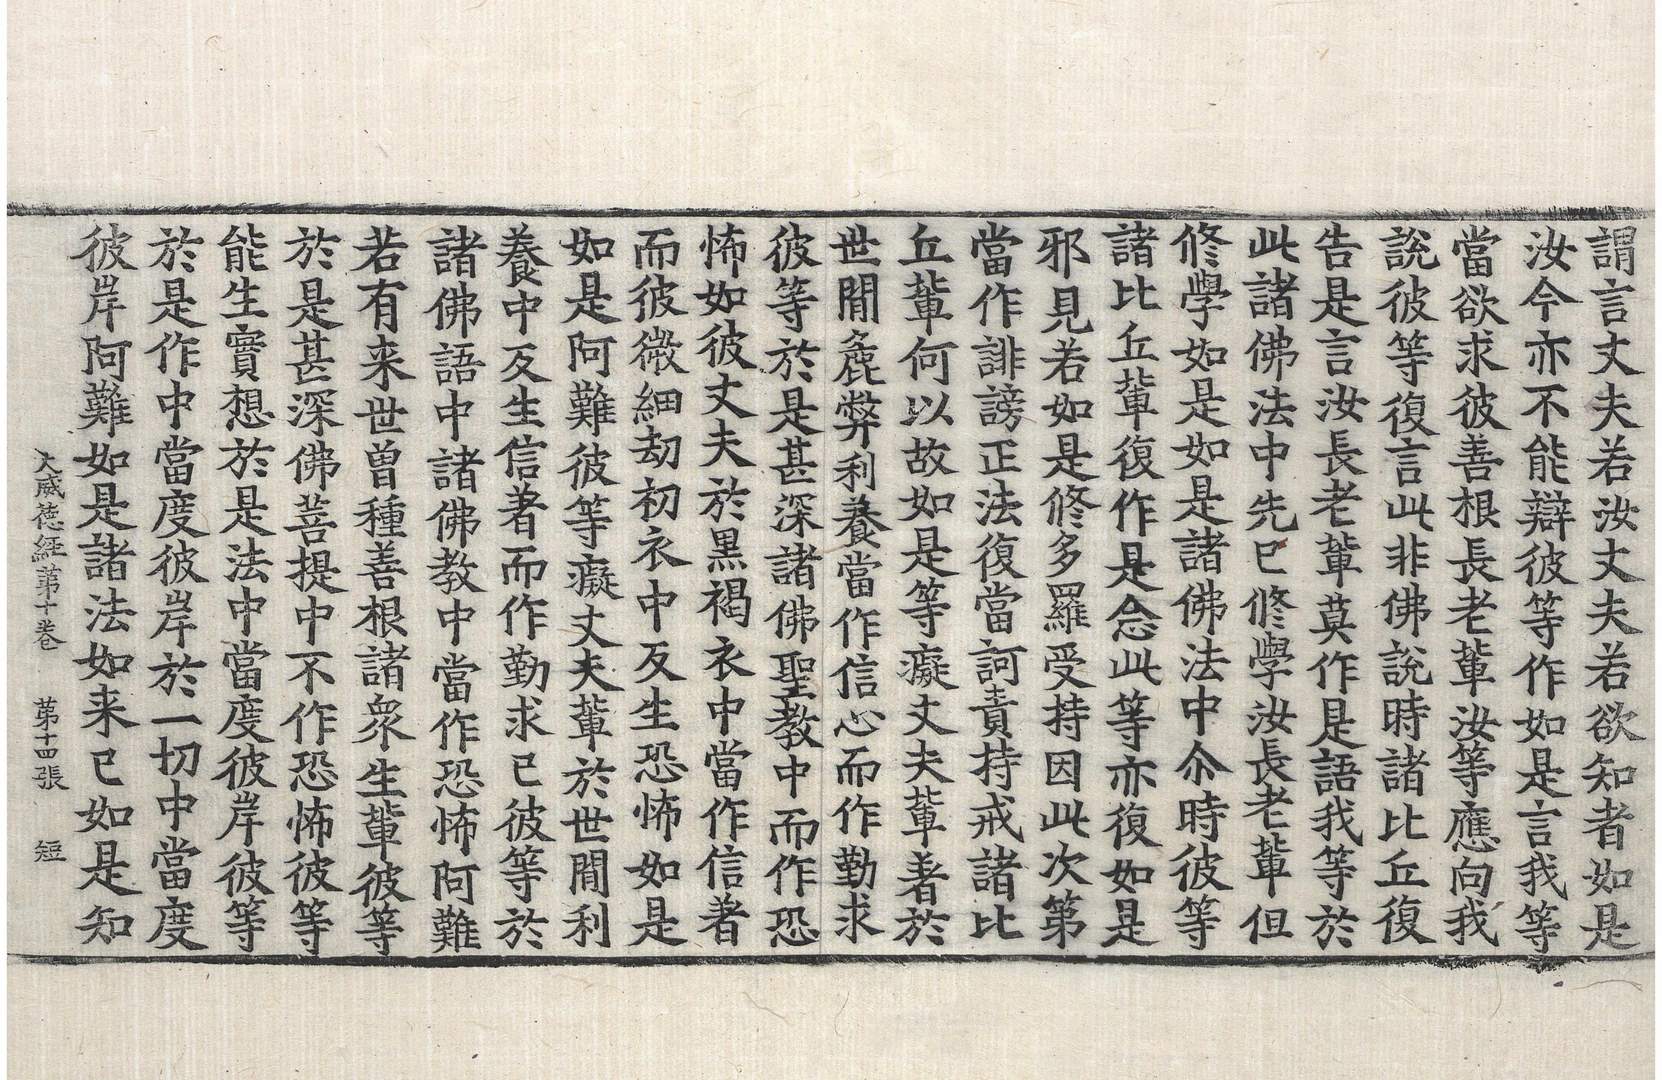 謂言丈夫若汝丈夫若欲知者如是
汝今亦不能辯彼等作如是言我等
當欲求彼善根長老輩汝等應向我
說彼等復言此非佛說時諸比丘復
告是言汝長老輩莫作是語我等於
此諸佛法中先已修學汝長老輩但
修學如是如是諸佛法中尒時彼等
諸比丘輩復作是念此等亦復如是
邪見若如是修多羅受持因此次第
當作誹謗正法復當訶責持戒諸比
丘輩何以故如是等癡丈夫輩著於
世閒麁弊利養當作信心而作勤求
彼等於是甚深諸佛聖教中而作恐
怖如彼丈夫於黒褐衣中當作信著
而彼微細劫初衣中反生恐怖如是
如是阿難彼等癡丈夫輩於世閒利
養中反生信著而作勤求已彼等於
諸佛語中諸佛教中當作恐怖阿難
若有来世曽種善根諸衆生輩彼等
於是甚深佛菩提中不作恐怖彼等
能生實想於是法中當度彼岸彼等
於是作中當度彼岸於一切中當度
彼岸阿難如是諸法如来已如是知
大威徳経苐十卷　苐十四張　短